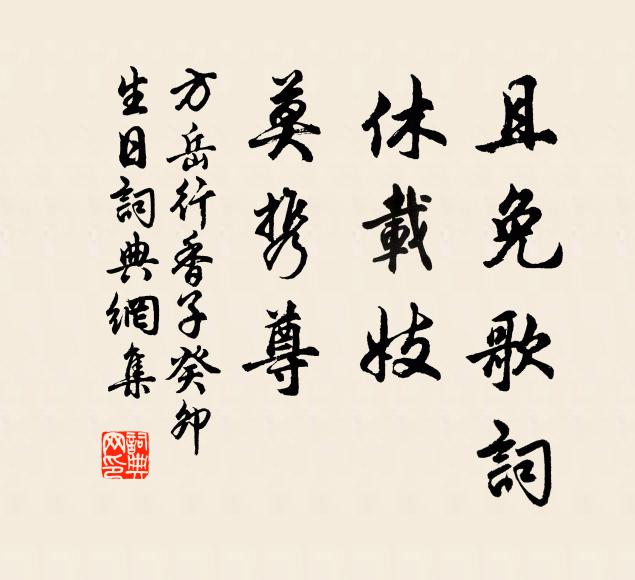 且免歌詞
休載妓
莫携尊
方岳行香子癸卯
生日詞典網集
詞典
网印